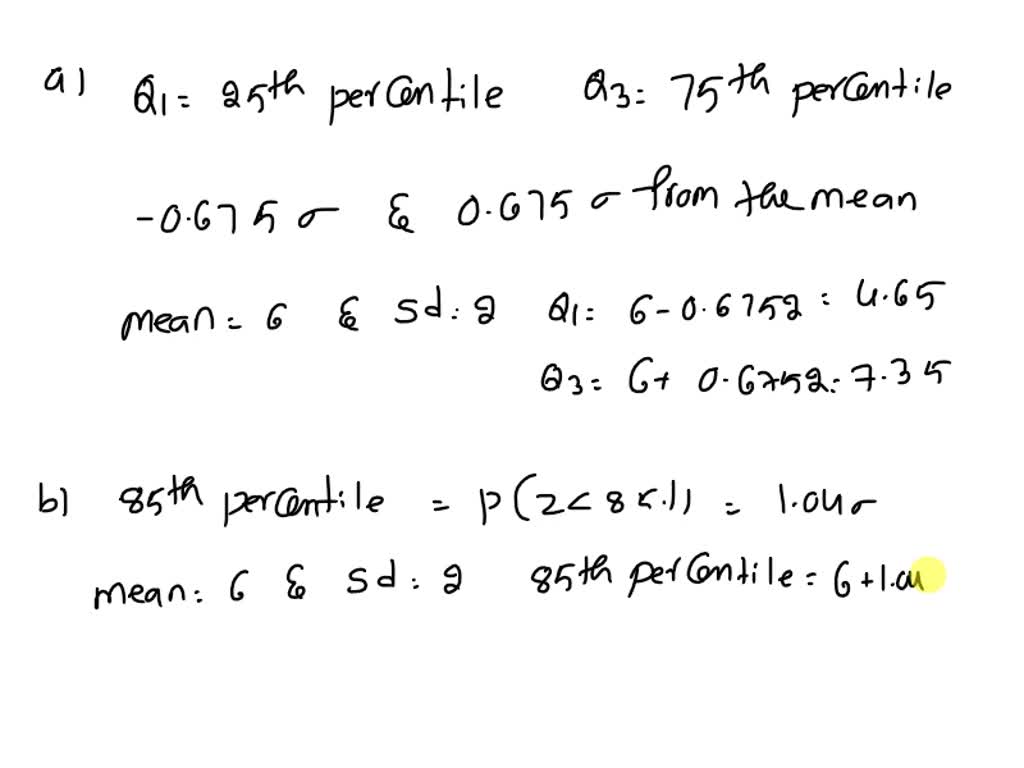 a) Q1 = 25th percentile Q3 = 75th percentile
-0.675 σ & 0.675 σ from the mean
mean = 6 & sd : 2 Q1 = 6 - 0.6752 = 4.65
Q3 = 6 + 0.6752 = 7.35
b) 85th percentile = P(Z < 85%) = 1.04σ
mean = 6 & sd : 2 85th percentile = 6 + 1.04